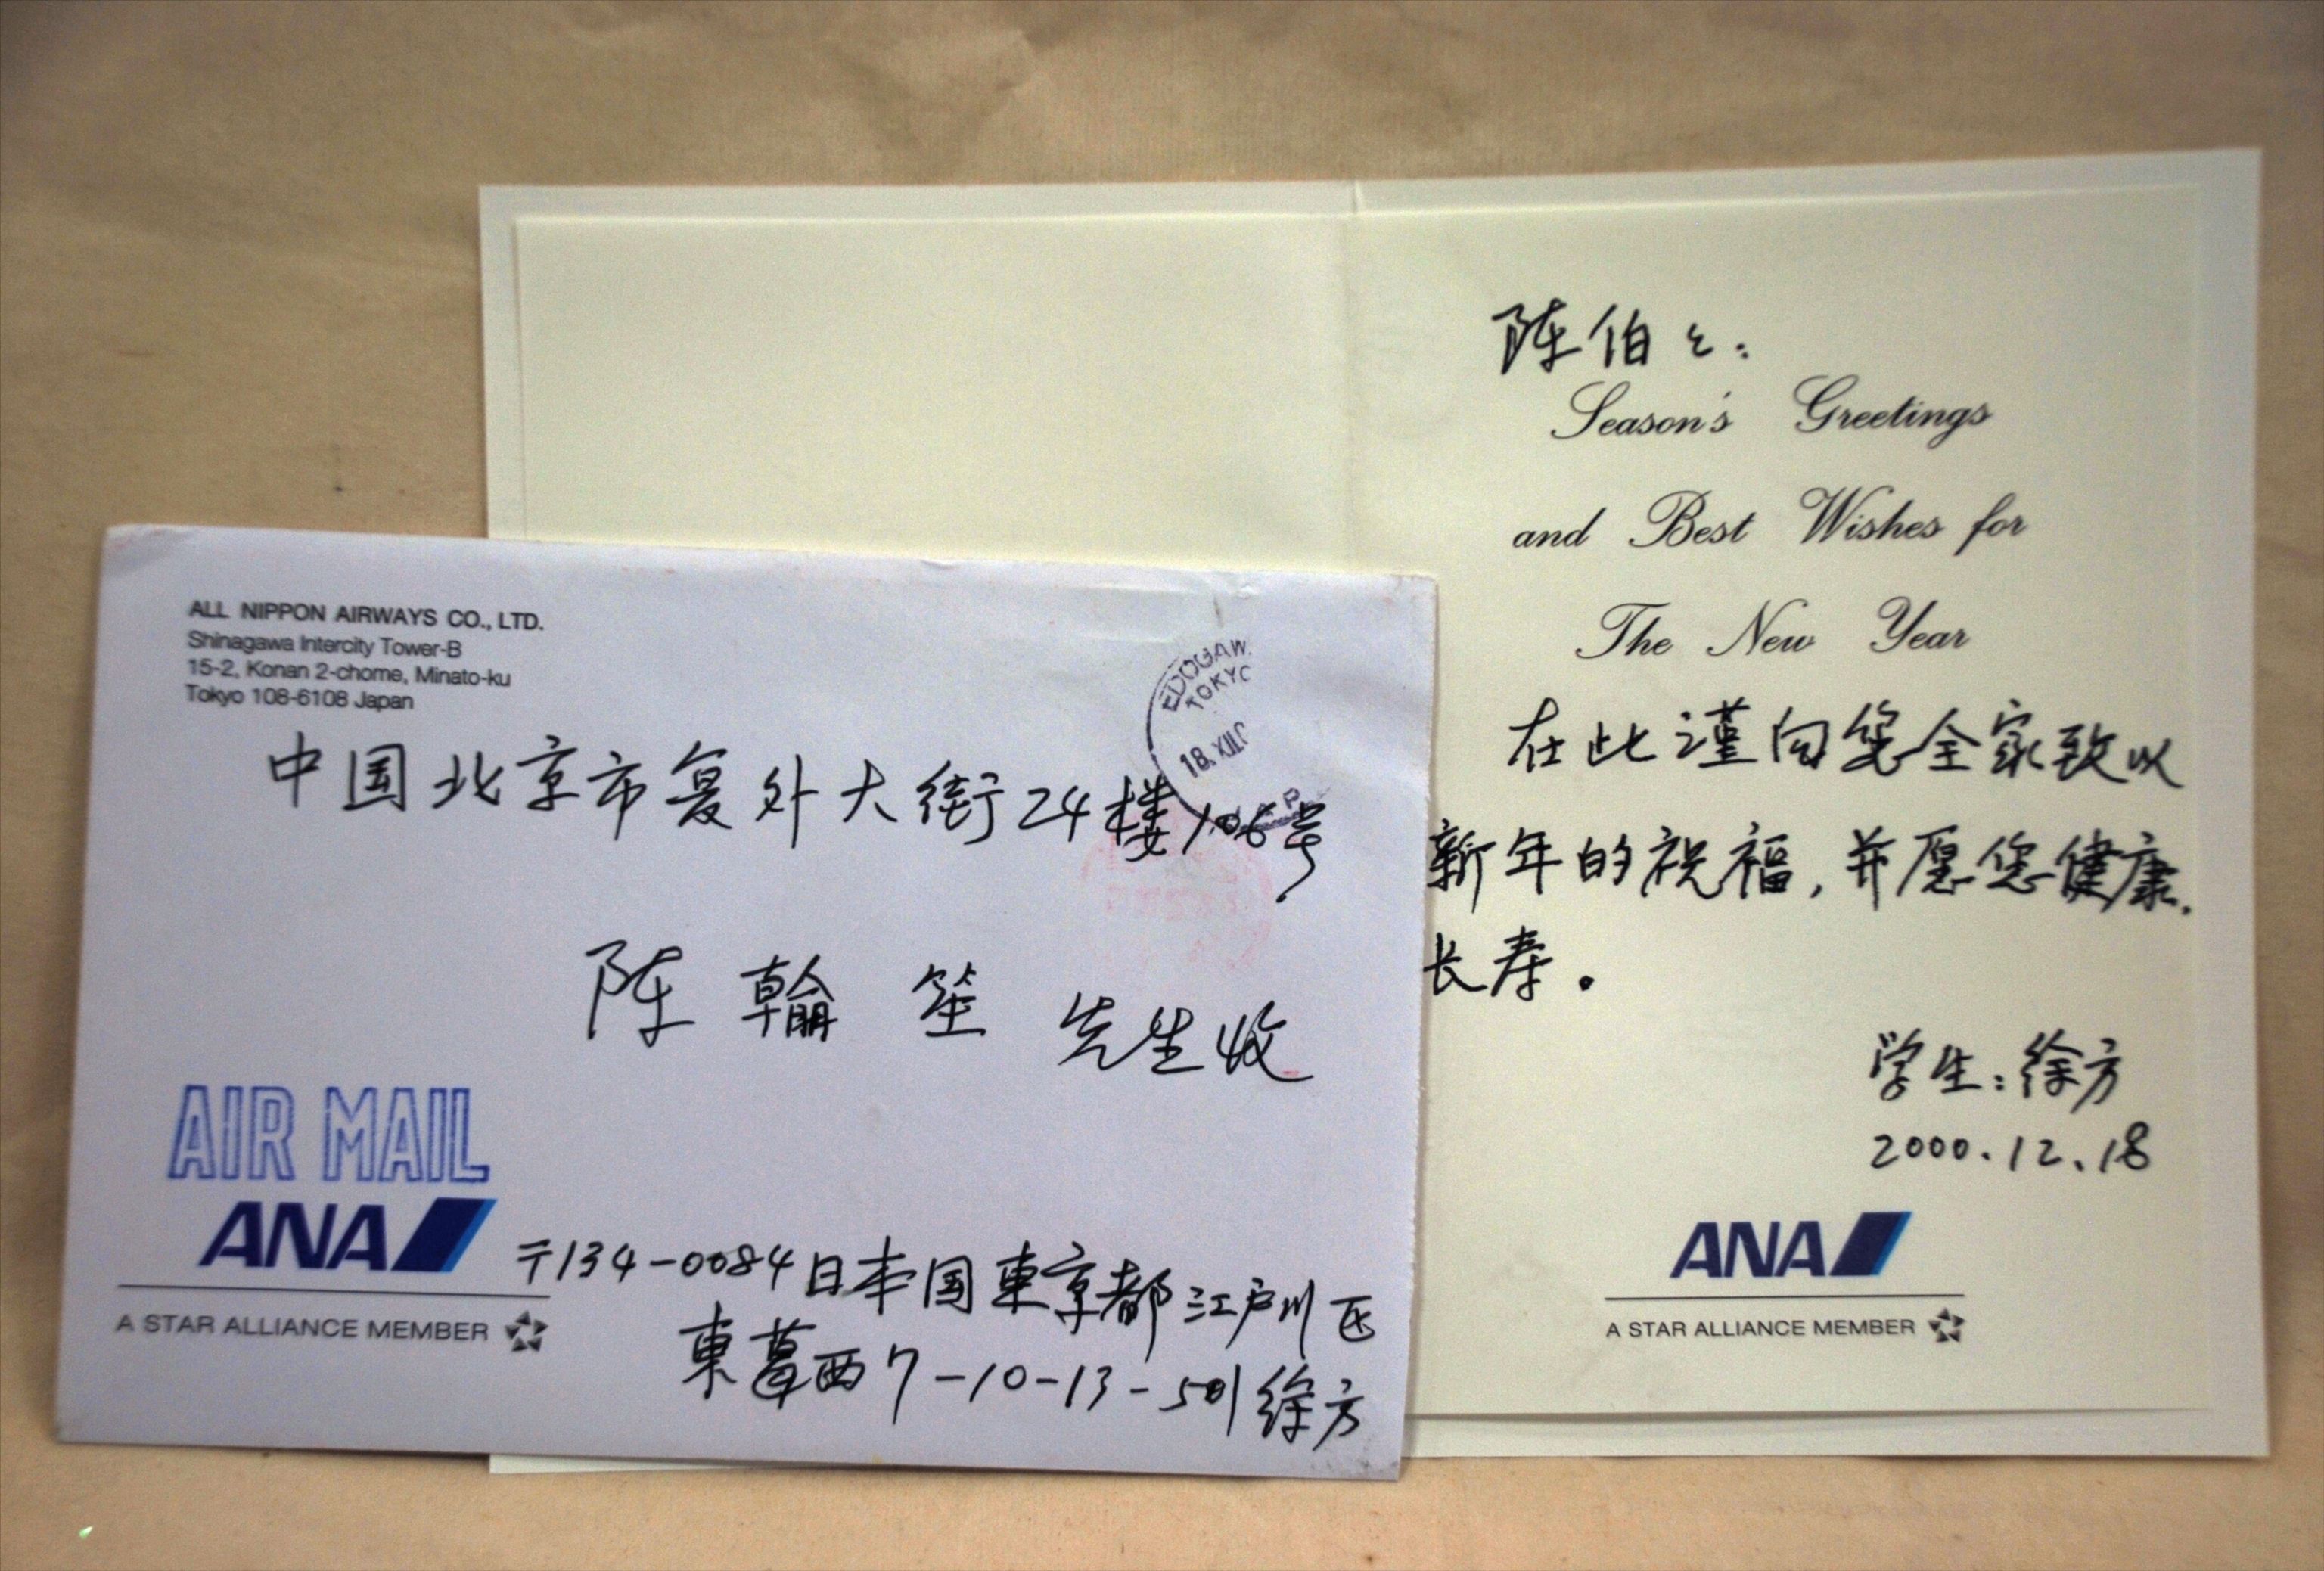 ALL NIPPON AIRWAYS CO., LTD.
Shinagawa Intercity Tower-B
15-2, Konan 2-chome, Minato-ku
Tokyo 108-6108 Japan
TOKYO
18.XII.
中国北京市复外大街24楼106号
陈翰笙 先生收
AIR MAIL
ANA
A STAR ALLIANCE MEMBER
〒134-0084 日本国東京都江戸川区
東葛西7-10-13-501 徐方
陈伯々:
Season's Greetings
and Best Wishes for
The New Year
在此谨向您全家致以
新年的祝福,并愿您健康、
长寿。
学生:徐方
2000.12.18
ANA
A STAR ALLIANCE MEMBER